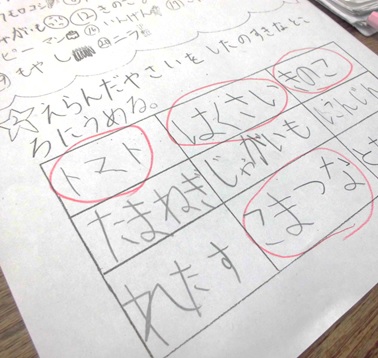 モロコシ
がいも ⑫ きのこ
ピーマン ⑭ いんげん
もやし ニラ
☆えらんだやさいをしたのすきなとこ
ろにうめる。
トマト はくさい きのこ
たまねぎ じゃがいも にんじん
れたす こまつな と